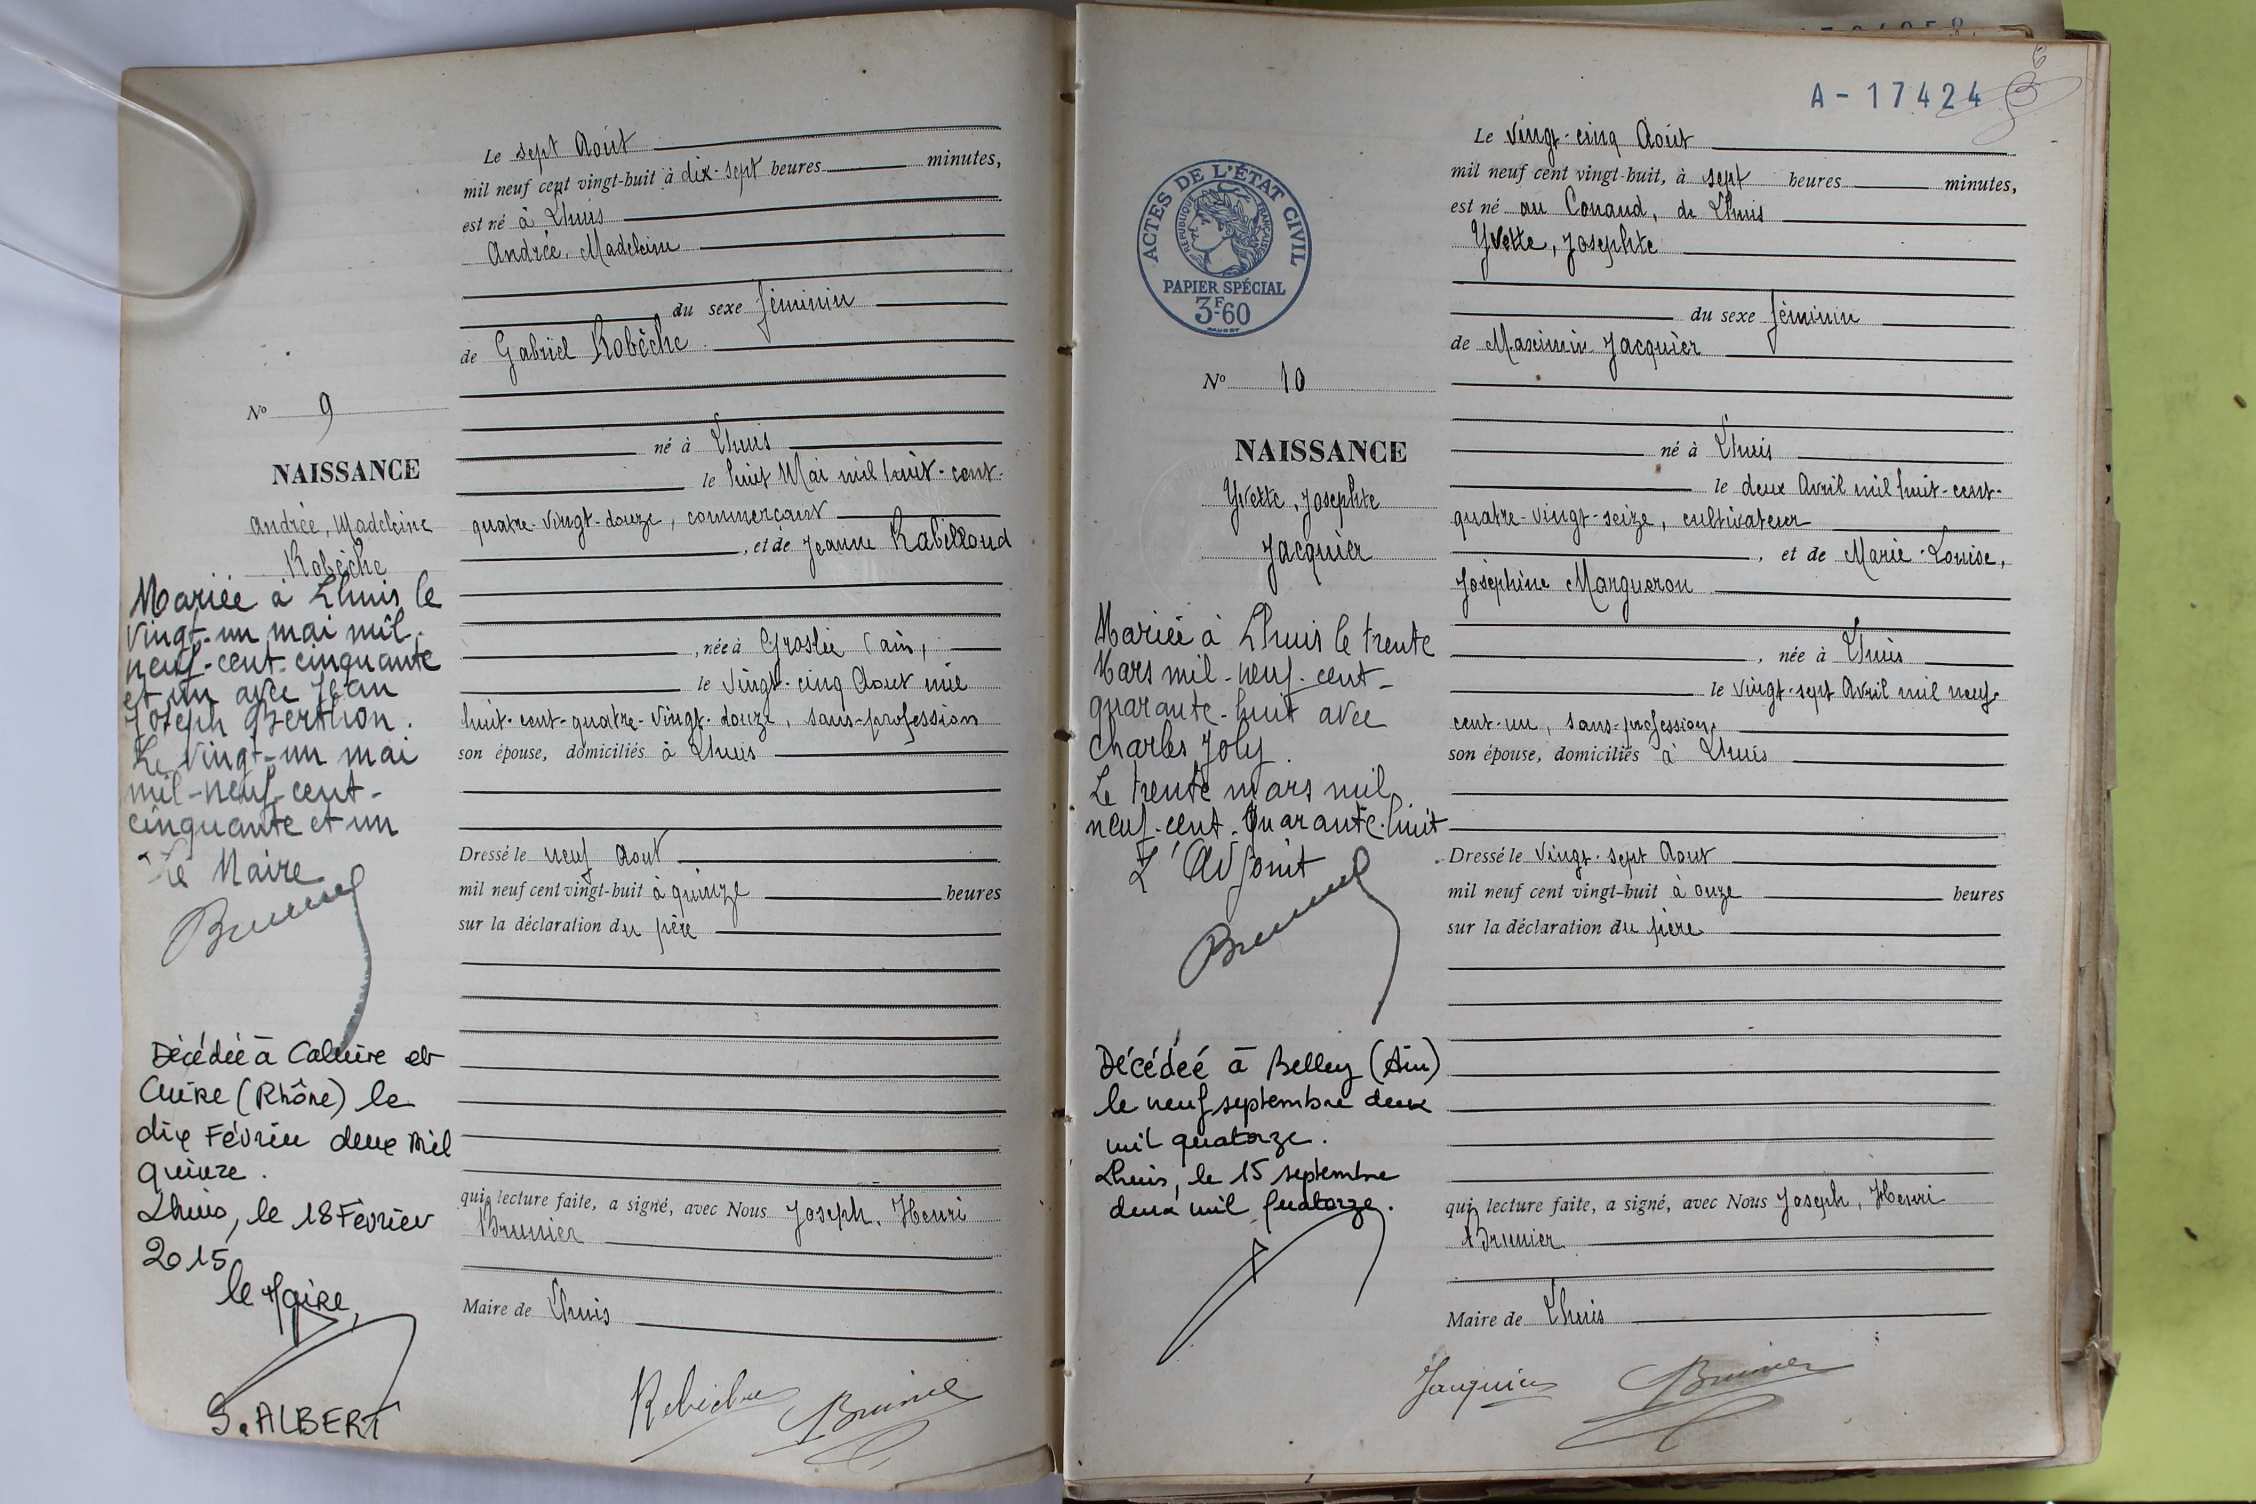 Le sept Août
mil neuf cent vingt-huit à dix-sept heures minutes,
est né à Lhuis
Andrée, Madeleine
du sexe féminin
de Gabriel Robèche
né à Lhuis
le huit Mai mil huit-cent-
quatre-vingt-douze, commerçant
, et de Jeanne Rabilloud
, née à Groslée (ain)
le vingt-cinq Aout mil
huit-cent-quatre-vingt-douze, sans-profession
son épouse, domiciliés à Lhuis
Dressé le neuf Aout
mil neuf cent vingt-huit à quinze heures
sur la déclaration du père
qui, lecture faite, a signé, avec Nous Joseph, Henri
Brunier
Maire de Lhuis
Robèche Brunier
No 9
NAISSANCE
Andrée, Madeleine
Robèche
Mariée à Lhuis le
vingt-un mai mil-
neuf-cent-cinquante
et un avec Jean
Joseph Berthon.
Le vingt-un mai
mil-neuf-cent-
cinquante et un
Le Maire
Décédée à Caluire et
Cuire (Rhône) le
dix Février deux mil
quinze.
Lhuis, le 18 Février
2015
le Maire,
S. ALBERT
A-17424
6
ACTES DE L'ÉTAT CIVIL
RÉPUBLIQUE FRANÇAISE
PAPIER SPÉCIAL
3F.60
No 10
NAISSANCE
Yvette, Josephte
Jacquier
Mariée à Lhuis le trente
Mars mil-neuf-cent-
quarante-huit avec
Charles Joly.
Le trente mars mil
neuf-cent-Quarante-huit
L'Adjoint
Décédée à Belley (Ain)
le neuf septembre deux
mil quatorze.
Lhuis, le 15 septembre
deux mil quatorze.
Le vingt-cinq Août
mil neuf cent vingt-huit, à sept heures minutes,
est né au Conand, de Lhuis
Yvette, Josephte
du sexe féminin
de Maximin Jacquier
né à Lhuis
le deux Avril mil huit-cent-
quatre-vingt-seize, cultivateur
, et de Marie-Louise,
Joséphine Margueron
, née à Lhuis
le vingt-sept Avril mil neuf-
cent-un, sans-profession,
son épouse, domiciliés à Lhuis
Dressé le vingt-sept Aout
mil neuf cent vingt-huit à onze heures
sur la déclaration du père
qui, lecture faite, a signé, avec Nous Joseph, Henri
Brunier
Maire de Lhuis
Jacquier Brunier